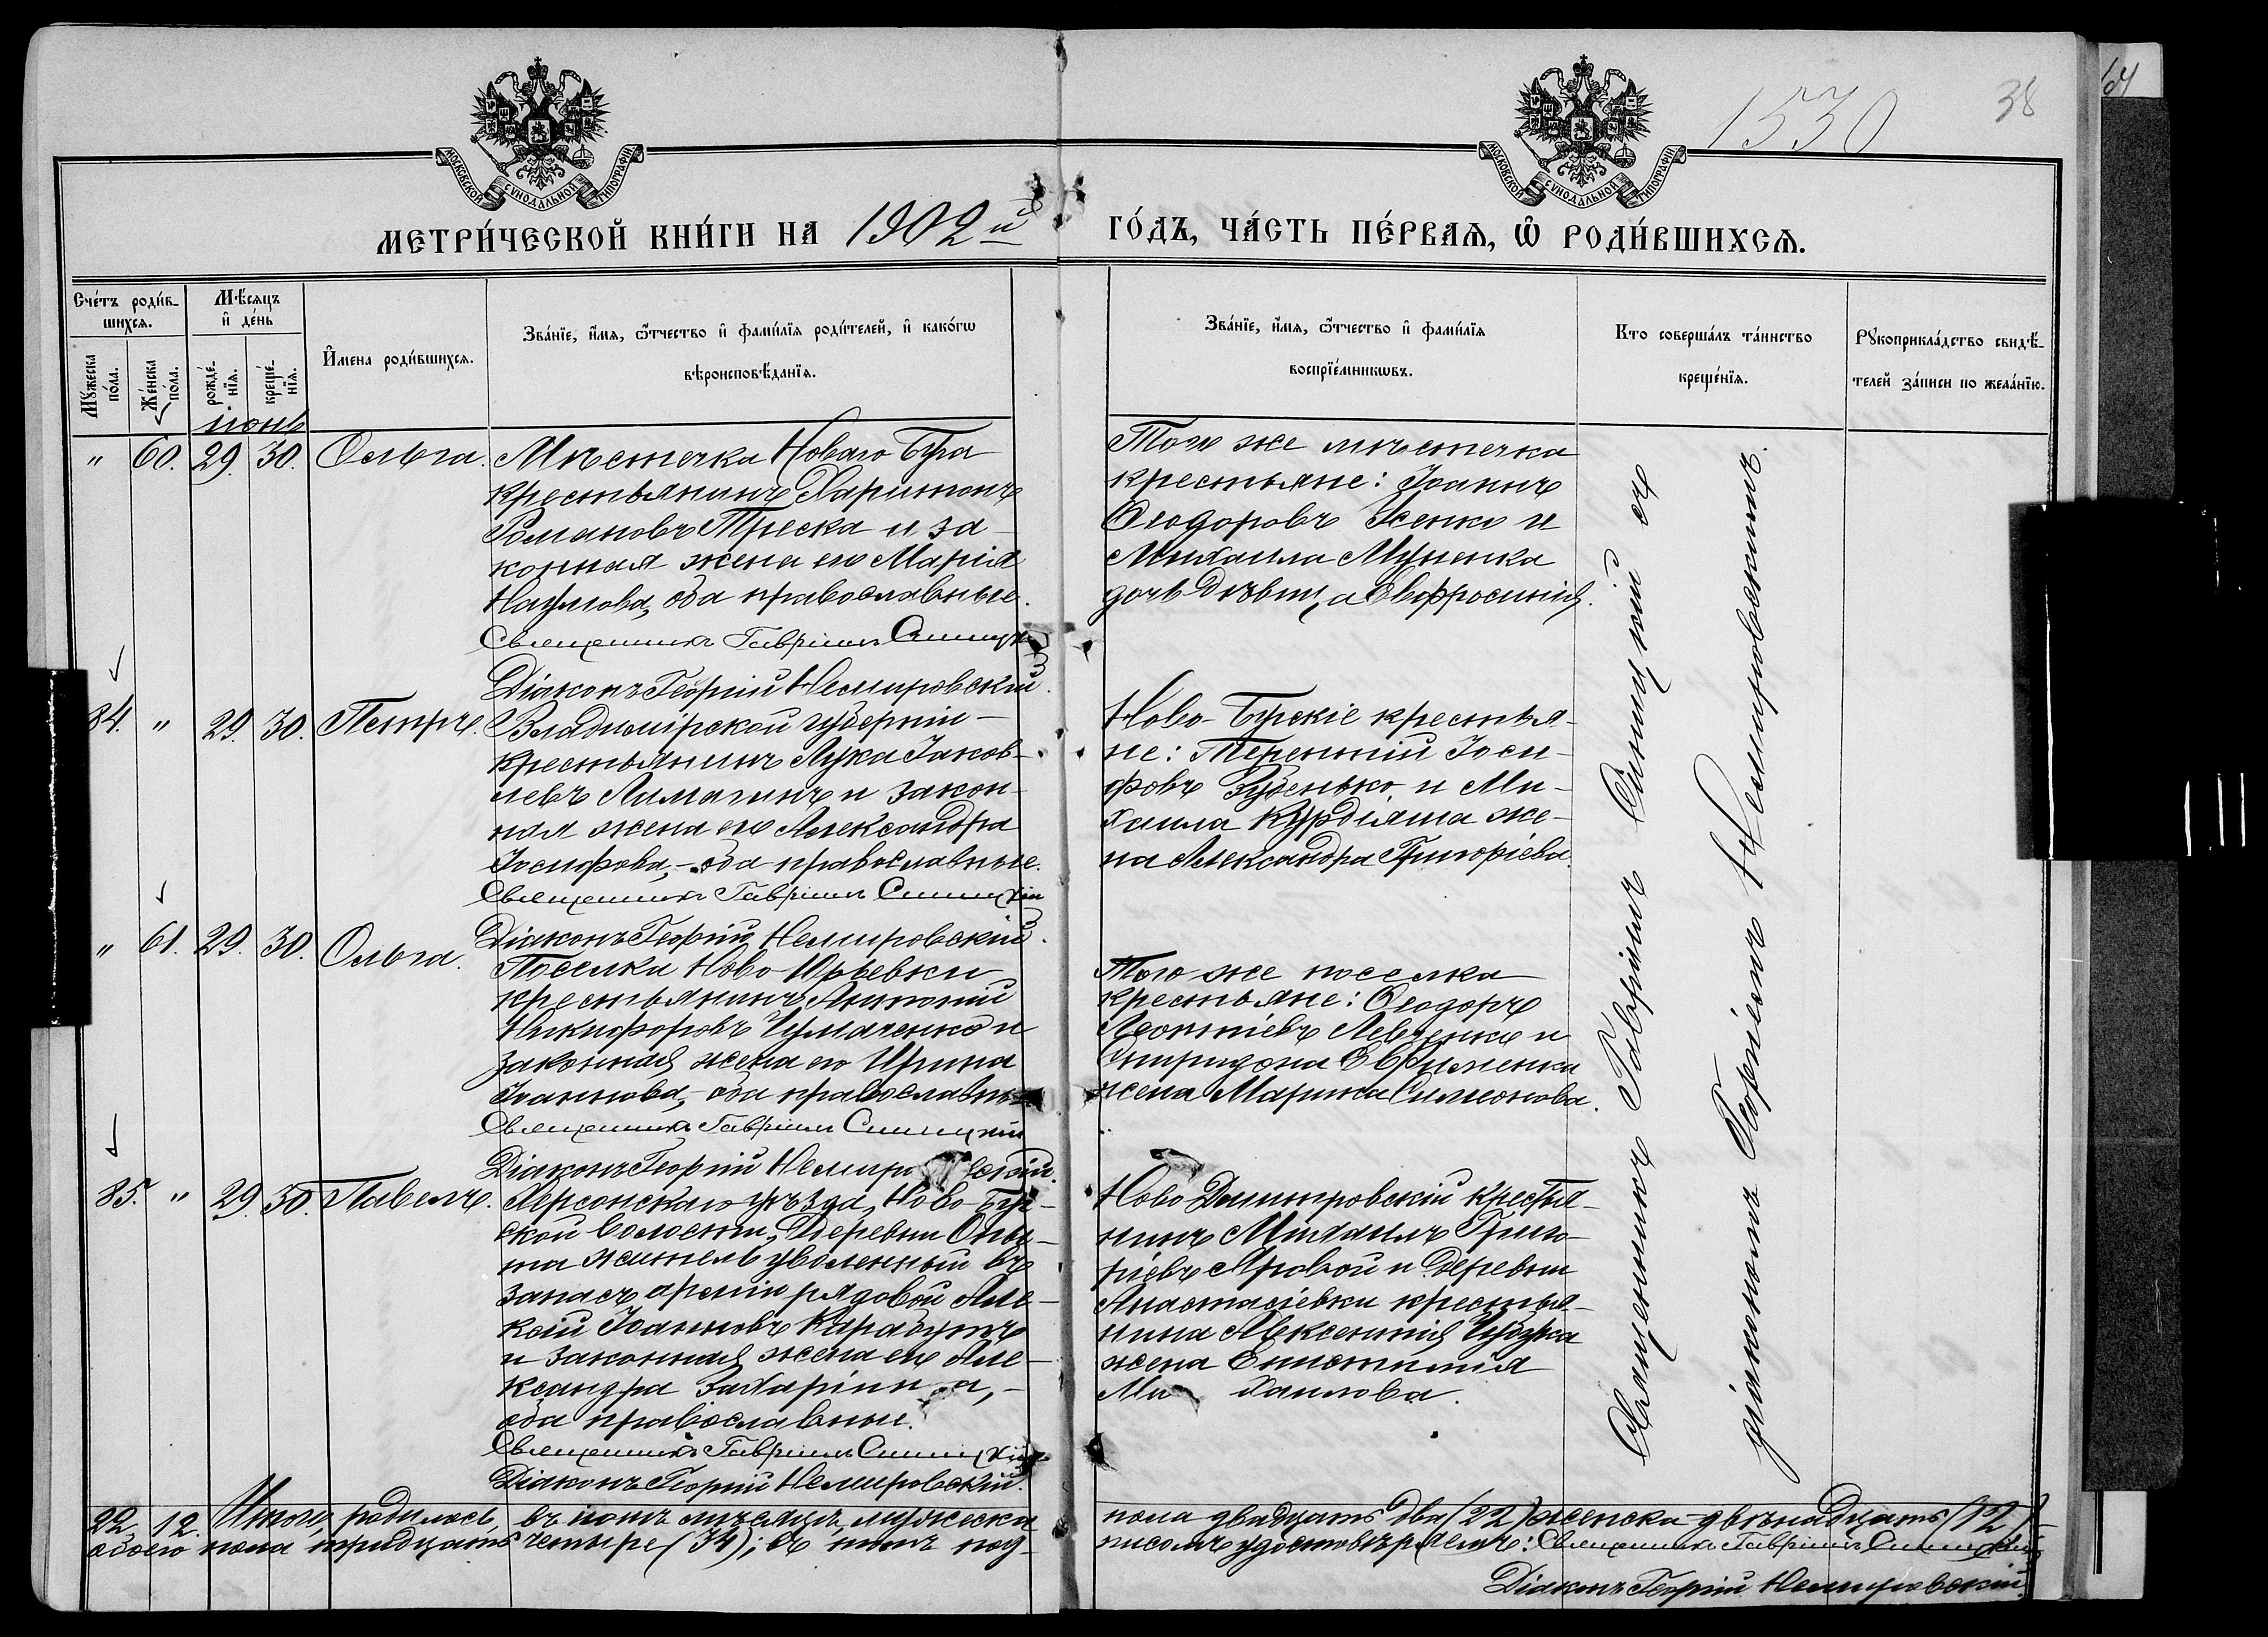 1530
38
МОСКОВСКОЙ СѴНОДАЛЬНОЙ ТИПОГРАФІИ
МОСКОВСКОЙ СѴНОДАЛЬНОЙ ТИПОГРАФІИ
МЕТРИ́ЧЕСКОЙ КНИ́ГИ НА 1902й ГО́ДЪ, ЧА́СТЬ ПЕ́РВАѦ, Ѡ҆ РОДИ́ВШИХСѦ.
Сче́тъ роди́в-
шихсѧ.
Мꙋ́жеска по́ла.
Же́нска по́ла.
Мѣ́сѧцъ и҆ де́нь
рожде́-
нїѧ.
креще́-
нїѧ.
И҆мена роди́вшихсѧ.
Зва́нїе, и҆́мѧ, ѻ҆́тчество и҆ фами́лїѧ роди́телей, и҆ како́гѡ
вѣроисповѣ́данїѧ.
Зва́нїе, и҆́мѧ, ѻ҆́тчество и҆ фами́лїѧ
воспрїе́мникѡвъ.
Кто соверша́лъ та́инство
креще́нїѧ.
Рꙋкоприкла́дство свидѣ́-
телей за́писи по жела́нїю.
іюнь
" 60. 29. 30. Ольга.
Мѣстечка Новаго Буга
крестьянинъ Харитонъ
Романовъ Треска и за-
конная жена его Марія
Наумова, оба православные.
Священникъ Гавріилъ Синицкій
Діаконъ Георгій Немировскій.
Того же мѣстечка
крестьяне: Іоаннъ
Ѳеодоровъ и
Михаила
дочь дѣвица Евфросинія.
84. " 29. 30. Петръ.
Владимірской губерніи
крестьянинъ Лука Іаков-
левъ и закон-
ная жена его Александра
Іосифова, – оба православные.
Священникъ Гавріилъ Синицкій
Діаконъ Георгій Немировскій.
Ново-Бугскіе крестья-
не: Терентій Іоси-
фовъ Зубенько и Ми-
хаила Курдіяша же-
на Александра Григоріева.
" 61. 29. 30. Ольга.
Поселка Ново-Юрьевки
крестьянинъ Антоній
Никифоровъ Чумаченко и
законная жена его Ирина
Іоаннова, – оба православные
Священникъ Гавріилъ Синицкій
Діаконъ Георгій Немировскій.
Того же поселка
крестьяне: Ѳеодоръ
Леонтіевъ Левченко и
Спиридона Ефименка
жена Марина Симеонова.
85. " 29. 30. Павелъ.
Херсонскаго уѣзда, Ново-Буг-
ской волости, деревни
житель уволенный въ
запасъ арміи рядовой Але-
ксій Іоанновъ Карабутъ
и законная жена его Але-
ксандра Захаріина, –
оба православные.
Священникъ Гавріилъ Синицкій
Діаконъ Георгій Немировскій.
Ново Димитровскій крестья-
нинъ Михаилъ Григо-
ріевъ Яровой и деревни
Анастасіевки крестья-
нина Авксентія
жена Епистимія
Михаилова.
Священникъ Гавріилъ Синицкій съ
діакономъ Георгіемъ Немировскимъ.
22. 12. Итого родилось въ іюнѣ мѣсяцѣ мужеска пола двадцать два (22) женска двѣнадцать (12)
обоего пола тридцать четыре (34); въ чемъ под- писомъ удостовѣряемъ: Священникъ Гавріилъ Синицкій
Діаконъ Георгій Немировскій.